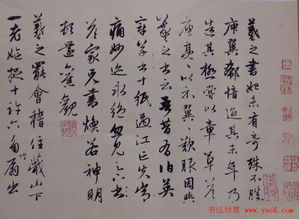 羲之書始未有奇殊不勝
庾翼郗愔迨其末年乃
造其極嘗以章草答
庾亮亮以示翼翼歎服因與
羲之書云吾昔有伯英
章草十紙過江亡失常
痛妙迹永絕忽見足下答
家兄書煥若神明
頓還舊觀
羲之罷會稽住蕺山下
一老嫗把十許六角扇出
书法欣赏 www.yac8.com